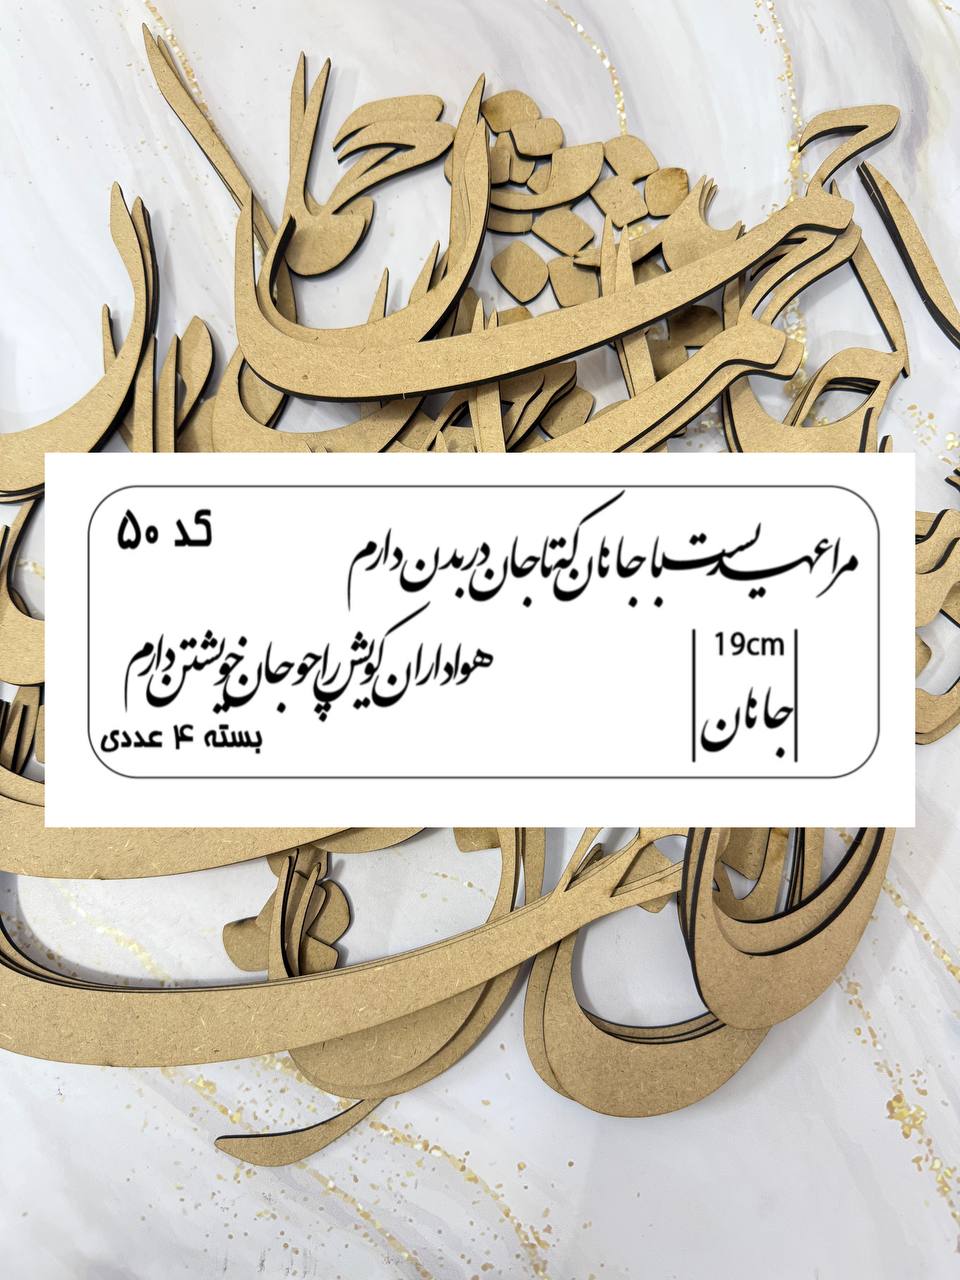 کد ۵۰
مرا عهدیست با جانان که تا جان در بدن دارم
هواداران کویش را چو جان خویشتن دارم
19cm
جانان
بسته ۴ عددی